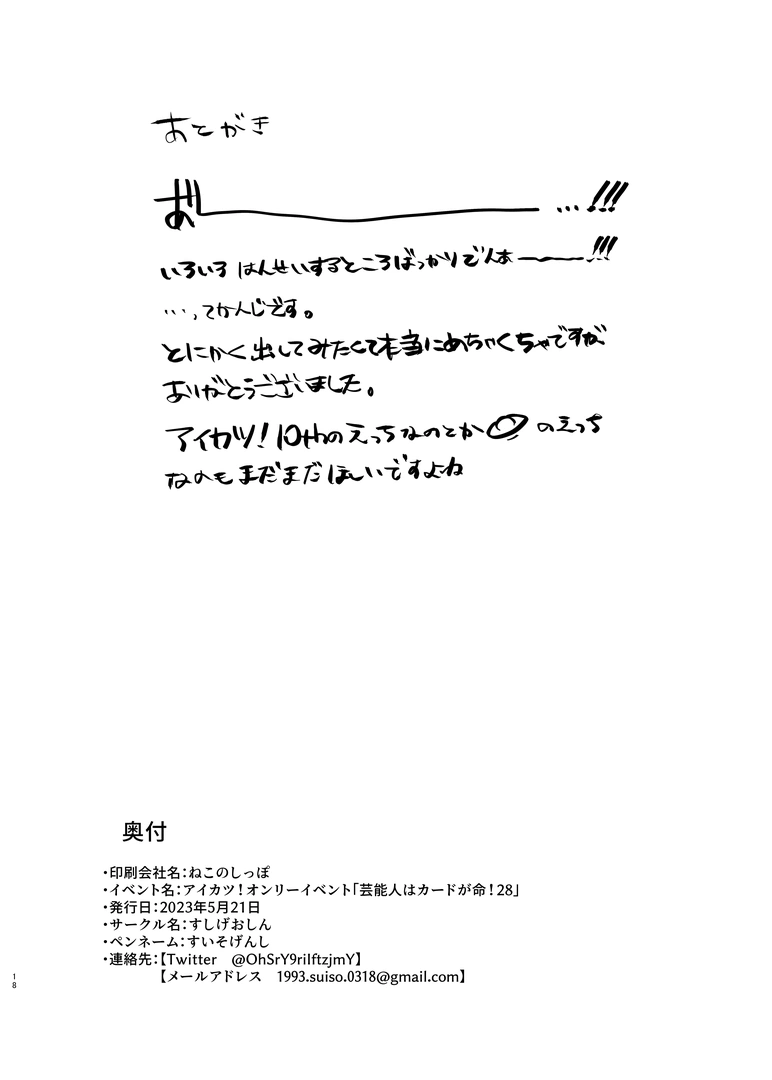 あとがき
あ゛――――…!!!
いろいろはんせいするところばっかりで
…ってかんじです。
とにかく出してみたくて本当にめちゃくちゃですが
ありがとうございました。
アイカツ!10thのえっちなのとか のえっち
なのもまだまだほしいですよね
奥付
・印刷会社名:ねこのしっぽ
・イベント名:アイカツ!オンリーイベント「芸能人はカードが命!28」
・発行日:2023年5月21日
・サークル名:すしげおしん
・ペンネーム:すいそげんし
・連絡先:【Twitter @OhSrY9riIftzjmY】
【メールアドレス 1993.suiso.0318@gmail.com】
18